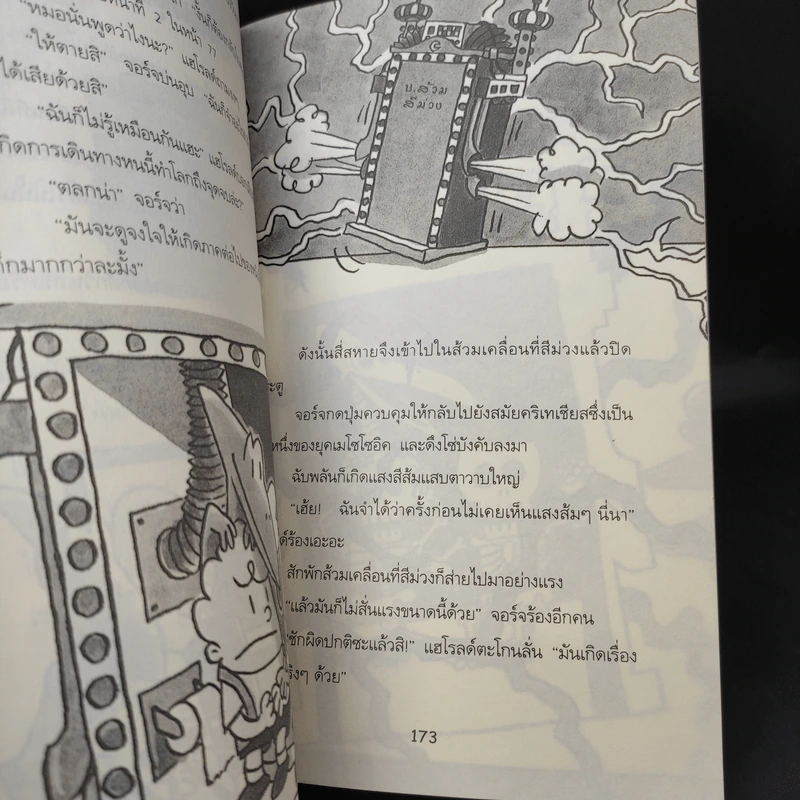 หน้าที่ 2 ในหน้า 77
"หมอนั่นพูดว่าไงนะ?"
"ให้ตายสิ" จอร์จบ่นอุบ
ได้เสียด้วยสิ"
"ฉันก็ไม่รู้เหมือนกันแฮะ"
กิดการเดินทางหนนี้ทำโลกถึงจุดจบล่ะ?"
"ตลกน่า" จอร์จว่า
"มันจะดูจงใจให้เกิดภาคต่อไป
กมากกว่าละมั้ง"
บ.ส้วม
สีม่วง
ดังนั้นสี่สหายจึงเข้าไปในส้วมเคลื่อนที่สีม่วงแล้วปิด
ะตู
จอร์จกดปุ่มควบคุมให้กลับไปยังสมัยคริเทเชียสซึ่งเป็น
หนึ่งของยุคเมโซโซอิค และดึงโซ่บังคับลงมา
ฉับพลันก็เกิดแสงสีส้มแสบตาวาบใหญ่
"เฮ้ย! ฉันจำได้ว่าครั้งก่อนไม่เคยเห็นแสงส้มๆ นี่นา"
ด์ร้องเอะอะ
สักพักส้วมเคลื่อนที่สีม่วงก็ส่ายไปมาอย่างแรง
"แล้วมันก็ไม่สั่นแรงขนาดนี้ด้วย" จอร์จร้องอีกคน
"ชักผิดปกติซะแล้วสิ!" แฮโรลด์ตะโกนลั่น "มันเกิดเรื่อง
ริงๆ ด้วย"
173